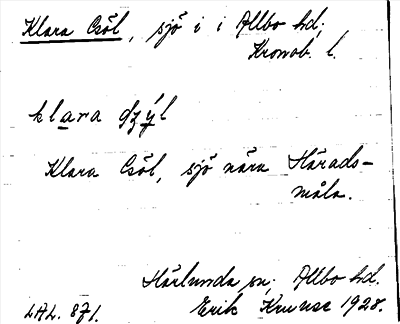 Klara Csöl, sjö i i Allbo hd;
Kronob. l.
klara
Klara Csöl, sjö nära Härads-
måla.
Härlunda sn; Allbo hd.
LAL. 871. Erik Kruuse 1928.